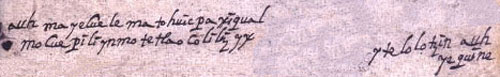 auh ma yehue le ma tohuic pa xi gual
mocuepilinmotetlaoColiliz yx
ytelolotzin auh
yequene